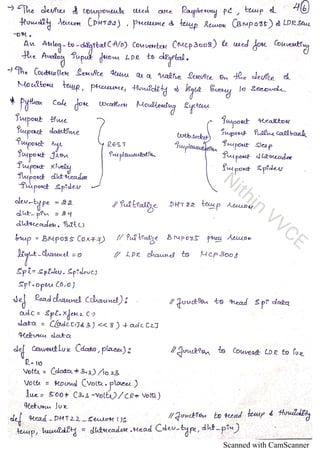 → The devices & components used are Raspberry Pi, temp &
Humidity sensor (DHT22), pressure & temp sensor (BMP085) & LDR sen
-or.
An Analog-to-digital (A/D) Converter (MCP3008) is used for Converting
the Analog input from LDR to digital.
→ The Controller Service runs as a native Service on the device &
Monitors temp, pressure, Humidity & light Every 10 Seconds.
* Python Code for Weather Monitoring System
import time
import datetime
import sys
import json
import xively
import dhtreader
import spidev
REST
Implementation
Websocket
Implementation
import reactor
import sleep
import dhtreader
import spidev
dev_type = 22 // initialize DHT 22 temp sensor
dht_pin = 24
dhtreader.init()
bmp = BMP085 (0x77) // initialize BMP085 pres sensor
light_channel = 0 // LDR channel to MCP3008
Spi = spidev.SpiDev()
Spi.open (0,0)
def ReadChannel (channel): // function to read spi data
adc = Spi.xfer2 (
data = ((adc[1]&3) << 8) + adc[2]
return data
def ConvertLux (data, places): // function to Convert LDR to lux
R=10
Volts = (data * 3.3) / 1023
Volts = round (Volts, places)
lux = 500 * (3.3 - Volts) / (R * Volts)
return lux
def read_DHT22_Sensor(): // function to read temp & Humidity
temp, humidity = dhtreader.read (dev_type, dht_pin)
Nithin VVCE
Scanned with CamScanner